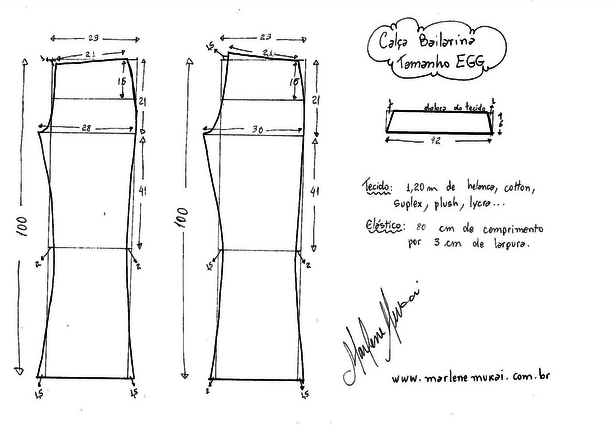 Calça Bailarina
Tamanho EGG
23
21
15
100
21
28
41
2
2
1,5
1,5
23
1,5
21
15
100
21
30
41
1,5
2
1,5
1,5
dobra do tecido
42
Tecido: 1,20 m de helanca, cotton,
suplex, plush, lycra...
Elástico: 80 cm de comprimento
por 3 cm de largura.
Marlene Mukai
www.marlenemukai.com.br